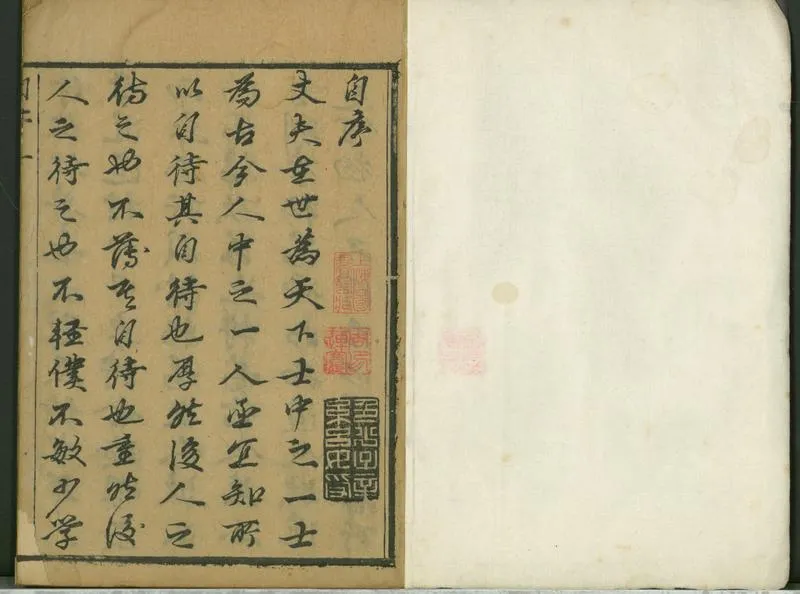 自序
丈夫在世為天下士中之一士
為古今人中之一人亟宜知所
以自待其自待也厚然後人之
待之也不薄其自待也重然後
人之待之也不輕僕不敏少学